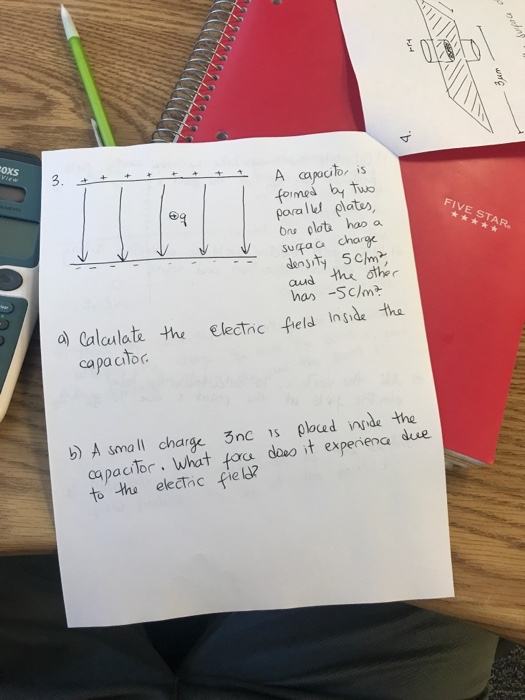 3.
+ + + + + + + +
⊕q
- - - - - - - -
A capacitor is
formed by two
parallel plates,
One plate has a
surface charge
density 5C/m²,
and the other
has -5C/m².
a) Calculate the electric field inside the
capacitor.
b) A small charge 3nC is placed inside the
capacitor. What force does it experience due
to the electric field?
4.
3μm
FIVE STAR
★★★★★
VIEW